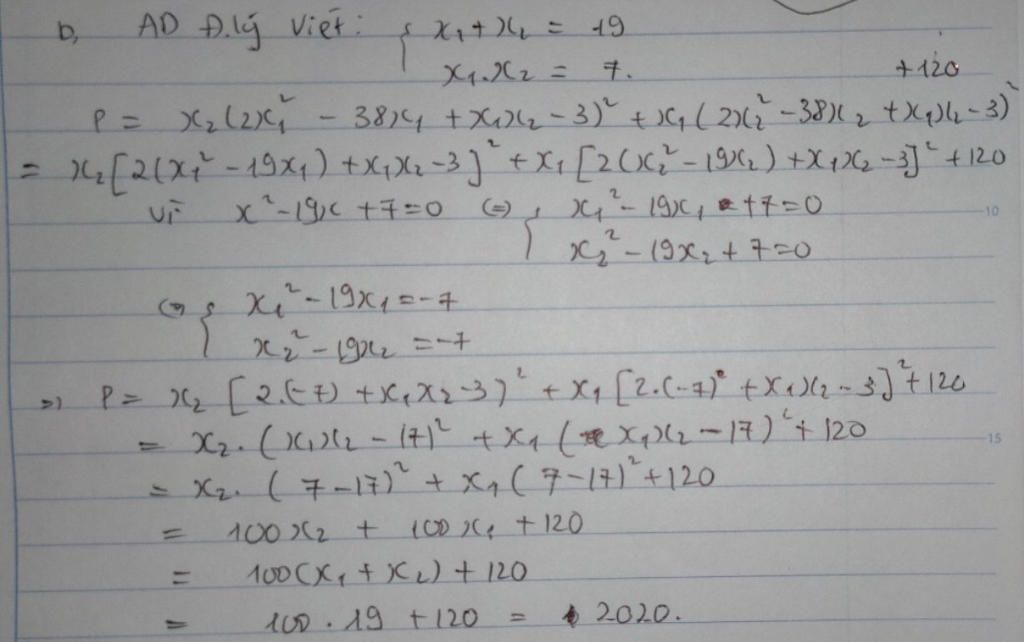 b, AD Đ.lý Viét: { x₁ + x₂ = 19
x₁.x₂ = 7.
+120
P = x₂(2x₁² - 38x₁ + x₁x₂ - 3)² + x₁(2x₂² - 38x₂ + x₁x₂ - 3)²
= x₂[2(x₁² - 19x₁) + x₁x₂ - 3]² + x₁[2(x₂² - 19x₂) + x₁x₂ - 3]² + 120
Vì x² - 19x + 7 = 0 (=) { x₁² - 19x₁ + 7 = 0
10
x₂² - 19x₂ + 7 = 0
(=) { x₁² - 19x₁ = -7
x₂² - 19x₂ = -7
=) P = x₂[2.(-7) + x₁x₂ - 3)² + x₁[2.(-7) + x₁x₂ - 3]² + 120
= x₂.(x₁x₂ - 17)² + x₁(x₁x₂ - 17)² + 120
15
= x₂.(7 - 17)² + x₁(7 - 17)² + 120
= 100x₂ + 100x₁ + 120
= 100(x₁ + x₂) + 120
= 100.19 + 120 = 2020.